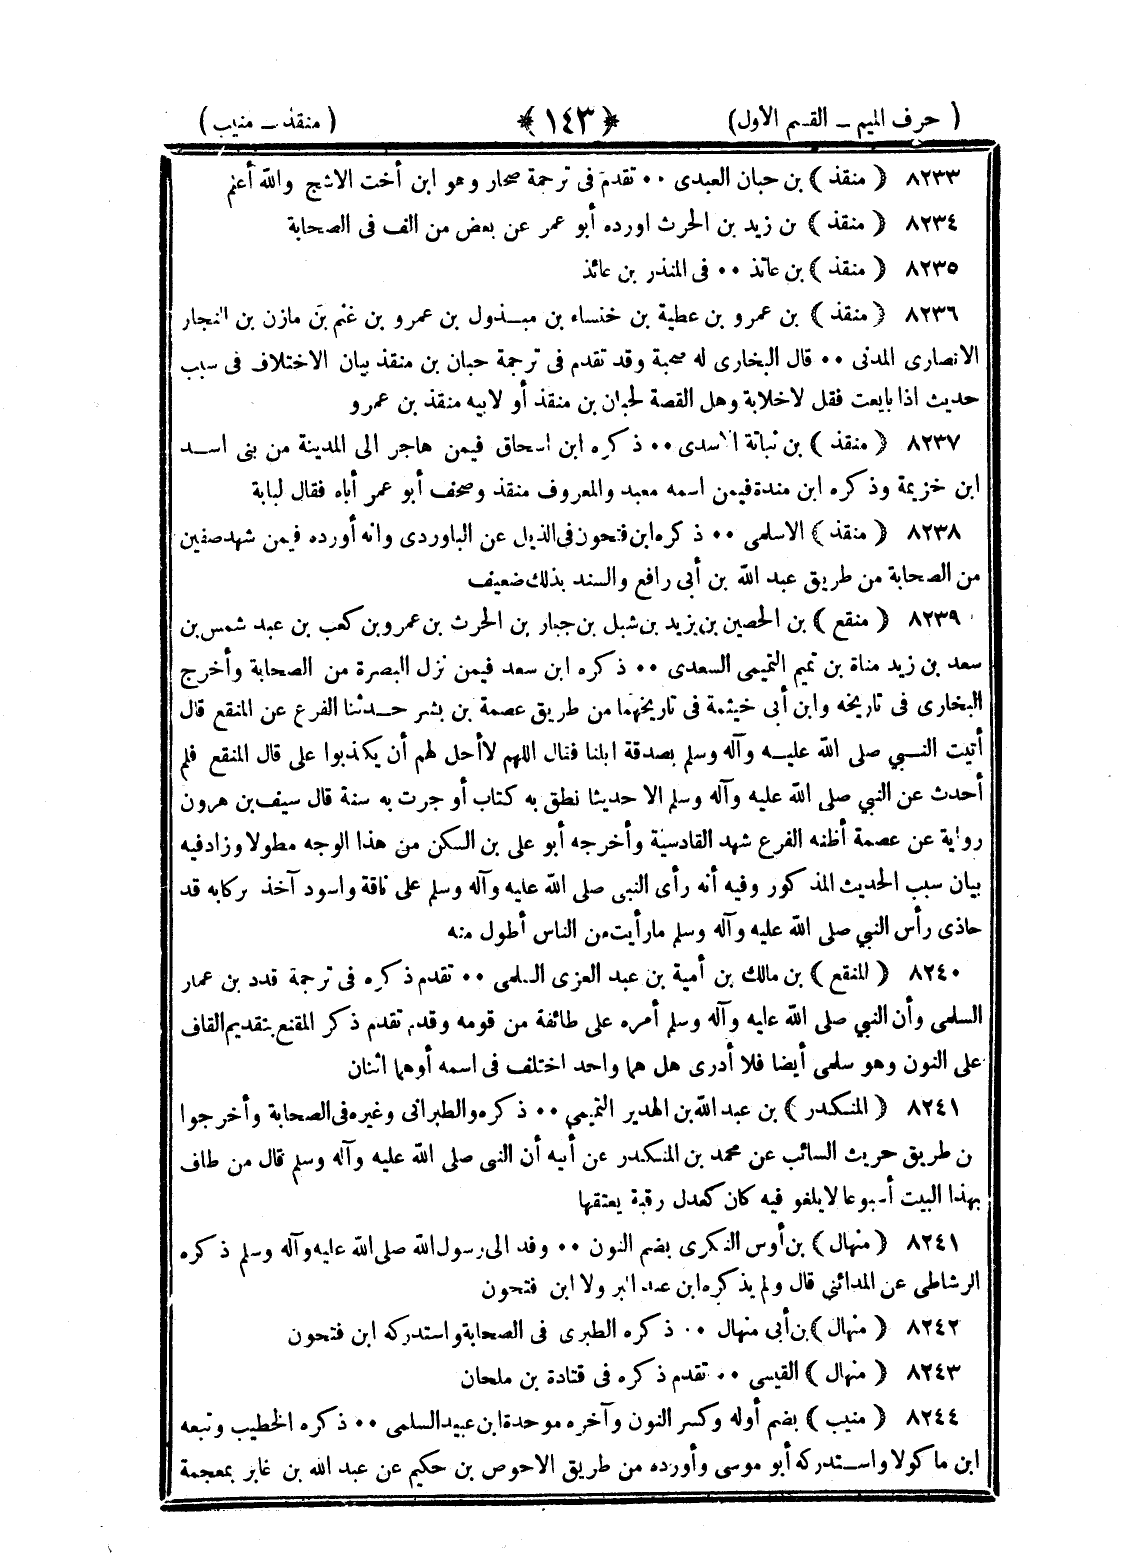 ( حرف الميم ــ القسم الاول) ﴿ ١٤٣ ﴾ ( منقذ ــ منيب )
٨٢٣٣ ( منقذ ) بن حبان العبدى ٠٠ تقدم فى ترجمة صحار وهو ابن أخت الاشج والله أعلم
٨٢٣٤ ( منقذ ) بن زيد بن الحرث اورده أبو عمر عن بعض من الف فى الصحابة
٨٢٣٥ ( منقذ ) بن عائذ ٠٠ فى المنذر بن عائذ
٨٢٣٦ ( منقذ ) بن عمرو بن عطية بن خنساء بن مبـذول بن عمرو بن غنم بن مازن بن النجار
الانصارى المدنى ٠٠ قال البخارى له صحبة وقد تقدم فى ترجمة حبان بن منقذ بيان الاختلاف فى سبب
حديث اذا بايعت فقل لاخلابة وهل القصة لحبان بن منقذ أو لابيه منقذ بن عمرو
٨٢٣٧ ( منقذ ) بن نباتة الاسدى ٠٠ ذكره ابن اسحاق فيمن هاجر الى المدينة من بنى اسـد
ابن خزيمة وذكره ابن مندة فيمن اسمه معبد والمعروف منقذ وصحف أبو عمر أباه فقال لبابة
٨٢٣٨ ( منقذ ) الاسلمى ٠٠ ذكره ابن فتحون فى الذيل عن الباوردى وانه أورده فيمن شهد صفين
من الصحابة من طريق عبد الله بن أبى رافع والسند بذلك ضعيف
٨٢٣٩ ( منقع ) بن الحصين بن يزيد بن شبل بن جبار بن الحرث بن عمرو بن كعب بن عبد شمس بن
سعد بن زيد مناة بن تميم التميمى السعدى ٠٠ ذكره ابن سعد فيمن نزل البصرة من الصحابة وأخرج
البخارى فى تاريخه وابن أبى خيثمة فى تاريخهما من طريق عصمة بن بشر حـدثنا الفرع عن المنقع قال
أتيت النـبي صلى الله عليـه وآله وسلم بصدقة ابلنا فقال اللهم لاأحل لهم أن يكذبوا على قال المنقع فلم
أحدث عن النبي صلى الله عليه وآله وسلم الا حديثا نطق به كتاب أو جرت به سنة قال سيف بن هرون
رواية عن عصمة أظنه الفرع شهد القادسية وأخرجه أبو على بن السكن من هذا الوجه مطولا وزاد فيه
بيان سبب الحديث المذكور وفيه أنه رأى النبى صلى الله عليه وآله وسلم على ناقة واسود آخذ بركابه قد
حاذى رأس النبي صلى الله عليه وآله وسلم مارأيت من الناس أطول منه
٨٢٤٠ ( المنقع ) بن مالك بن أمية بن عبد العزى السلمى ٠٠ تقدم ذكره فى ترجمة قدد بن عمار
السلمى وأن النبي صلى الله عليه وآله وسلم أمره على طائفة من قومه وقدم تقدم ذكر المقنع بتقديم القاف
على النون وهو سلمى أيضا فلا أدرى هل هما واحد اختلف فى اسمه أوهما اثنان
٨٢٤١ ( المنكدر ) بن عبد الله بن الهدير التميمي ٠٠ ذكره والطبرانى وغيره فى الصحابة وأخرجوا
ن طريق حريث السائب عن محمد بن المنكدر عن أبيه أن النبى صلى الله عليه وآله وسلم قال من طاف
بهذا البيت أسبوعا لايلغو فيه كان كعدل رقبة يعتقها
٨٢٤١ ( منهال ) بن أوس النكرى بضم النون ٠٠ وفد الى رسول الله صلى الله عليه وآله وسلم ذكره
الرشاطى عن المدائني قال ولم يذكره ابن عبد البر ولا ابن فتحون
٨٢٤٢ ( منهال ) بن أبى منهال ٠٠ ذكره الطبرى فى الصحابة واستدركه ابن فتحون
٨٢٤٣ ( منهال ) القيسى ٠٠ تقدم ذكره فى قتادة بن ملحان
٨٢٤٤ ( منيب ) بضم أوله وكسر النون وآخره موحدة ابن عبيد السلمى ٠٠ ذكره الخطيب وتبعه
ابن ماكولا واسـتدركه أبو موسى وأورده من طريق الاحوص بن حكيم عن عبد الله بن غابر بمعجمة